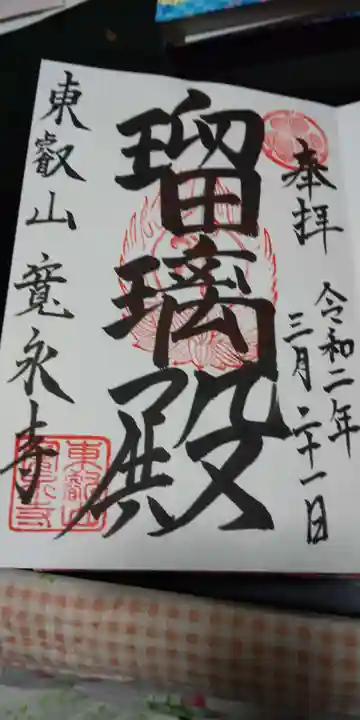 奉拝
令和二年
三月二十一日
瑠璃殿
東叡山寛永寺
東叡山
寛永寺